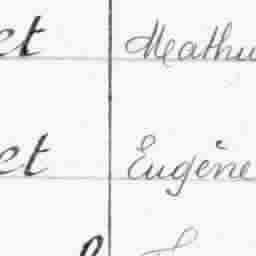 et Mathu
et Eugène